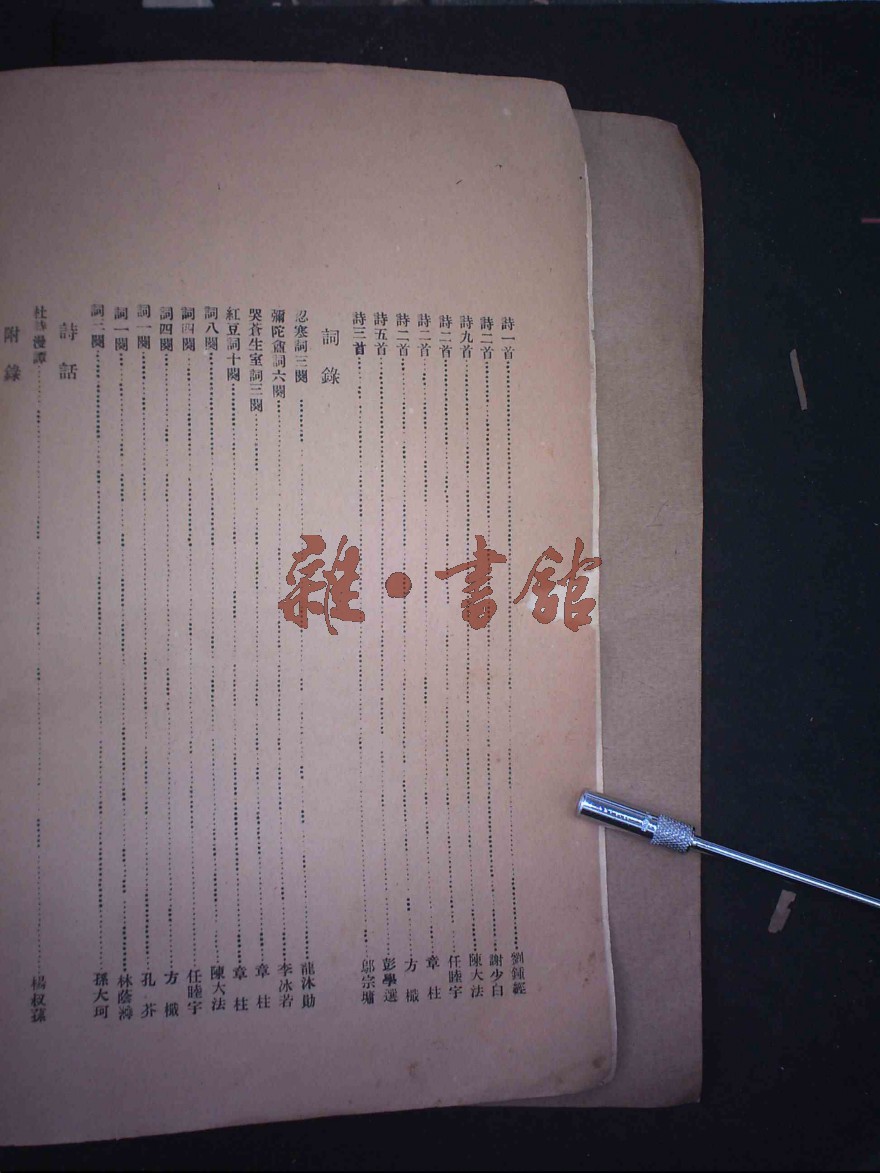 詩一首 劉鍾經
詩二首 謝少白
詩九首 陳大法
詩二首 任睦宇
詩二首 章 柱
詩二首 方 檝
詩五首 彭學選
詩三首 鄔宗墉
詞錄
忍寒詞三闋 龍沐勛
彌陀盦詞六闋 李冰若
哭蒼生室詞三闋 章 柱
紅豆詞十闋 章 柱
詞八闋 陳大法
詞四闋 任睦宇
詞四闋 方 檝
詞一闋 孔 芥
詞一闋 林蔭
詞二闋 孫大珂
詩話
杜詩漫譚 楊叔蓀
附錄
雜·書館